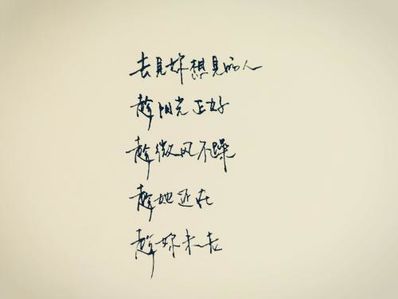 去見妳想見的人
趁阳光正好
趁微风不躁
趁她还在
趁妳未老